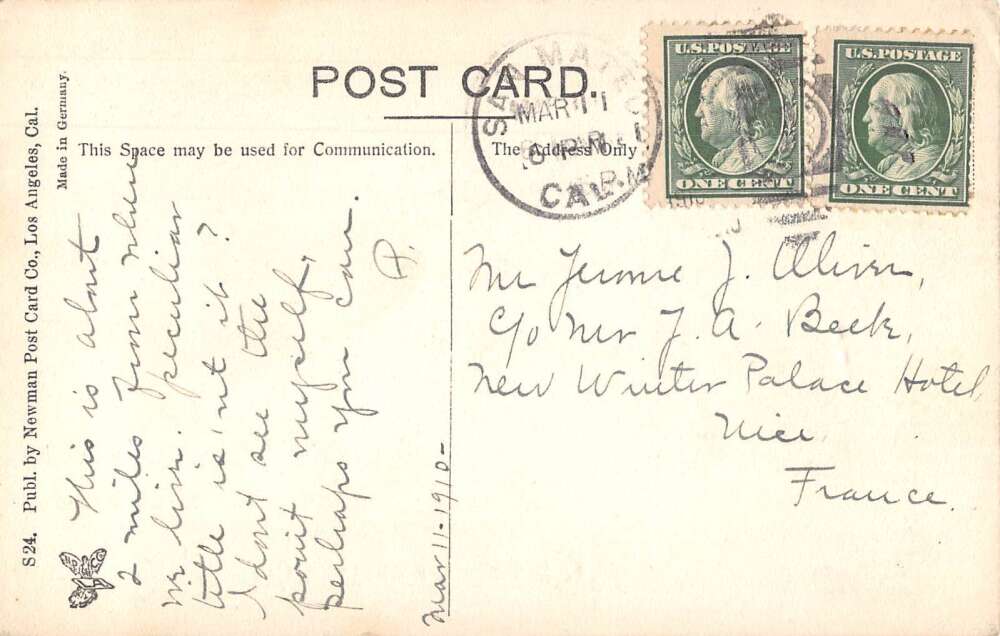 POST CARD.
This Space may be used for Communication.
The Address Only
S 24. Publ. by Newman Post Card Co., Los Angeles, Cal.
Made in Germany.
This is about
2 miles from where
we live. peculiar
title is'nt it?
I dont see the
point myself,
perhaps you can.
Mar 11-1910-
SAN MATEO
MAR 11
8 P.M.
CAL.
U.S. POSTAGE
ONE CENT
U.S. POSTAGE
ONE CENT
Mr Jerome J. Oliver,
c/o Mr J. A. Beek,
New Winter Palace Hotel,
Nice
France.